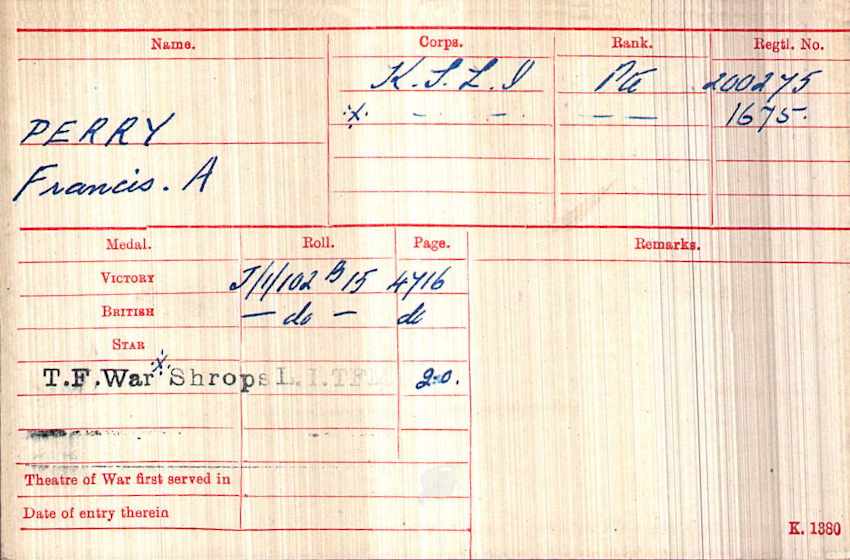 Name. Corps. Rank. Regtl. No.
K.S.L.I Pte 200275
·x· — — — — 1675.
PERRY
Francis. A
Medal. Roll. Page. Remarks.
VICTORY J/1/102 B15 4716
BRITISH — do — do
STAR
T.F.War ·x· Shrops L.I.TFM 20.
Theatre of War first served in
Date of entry therein
K. 1380